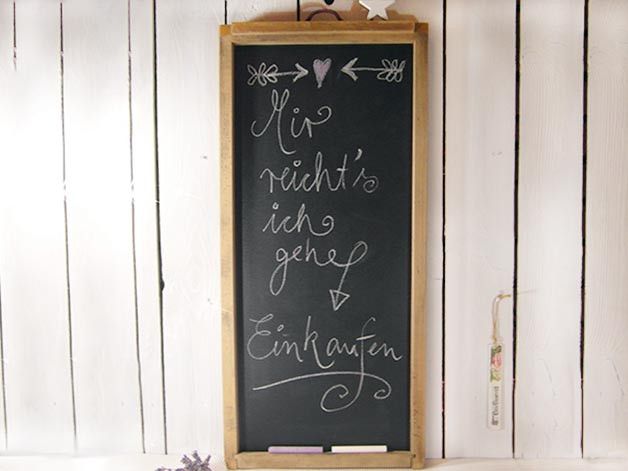 Mir
reicht's
ich
gehe
Einkaufen